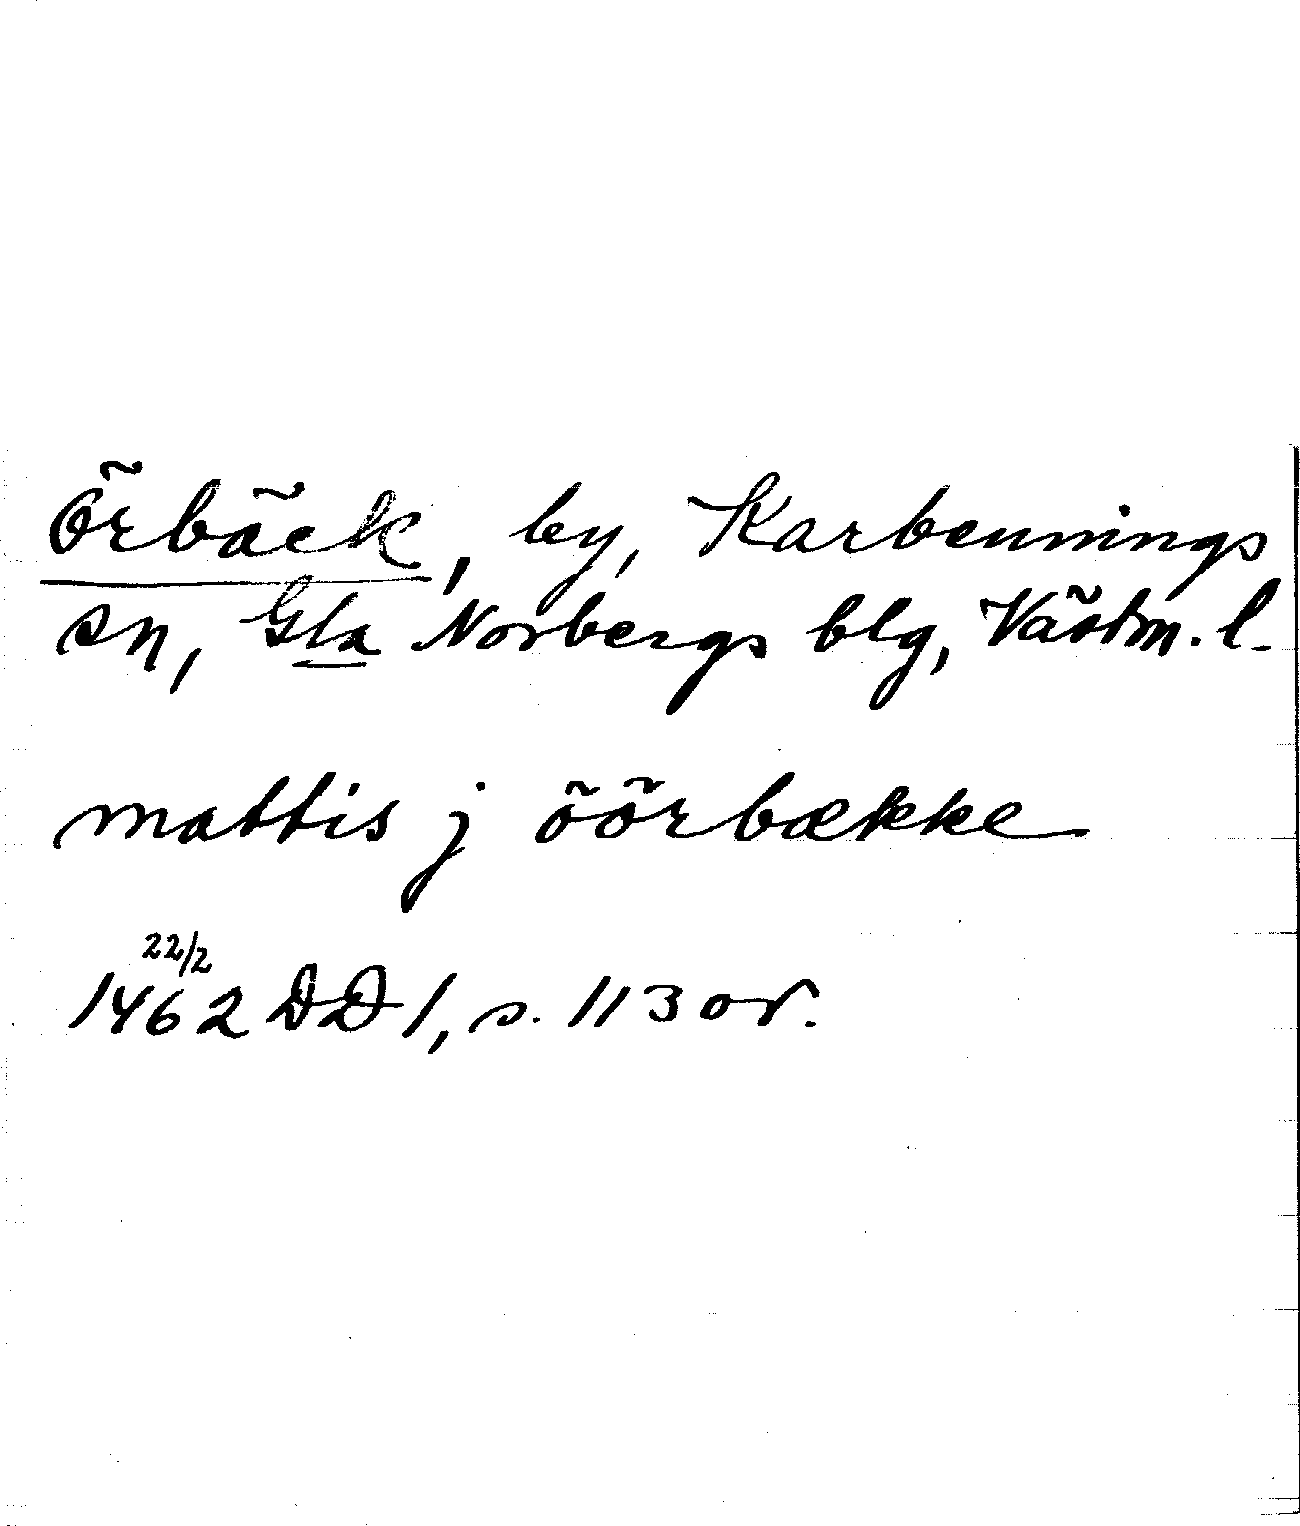 Örbäck, by, Karbennings
sn, Gla Norbergs blg, Västm. l.
mattis j öörbække
22/2
1462 DD 1, s. 113 or.